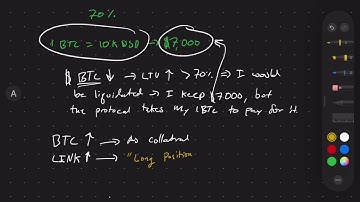 70%
1 BTC = 10K USD → $7,000
$ BTC ↓ → LTV ↑ > 70% ⇒ I would
be liquidated → I keep $7000, but
the protocol takes my 1BTC to pay for it.
BTC ↑ → As collateral
LINK ↑ → "Long Position
A